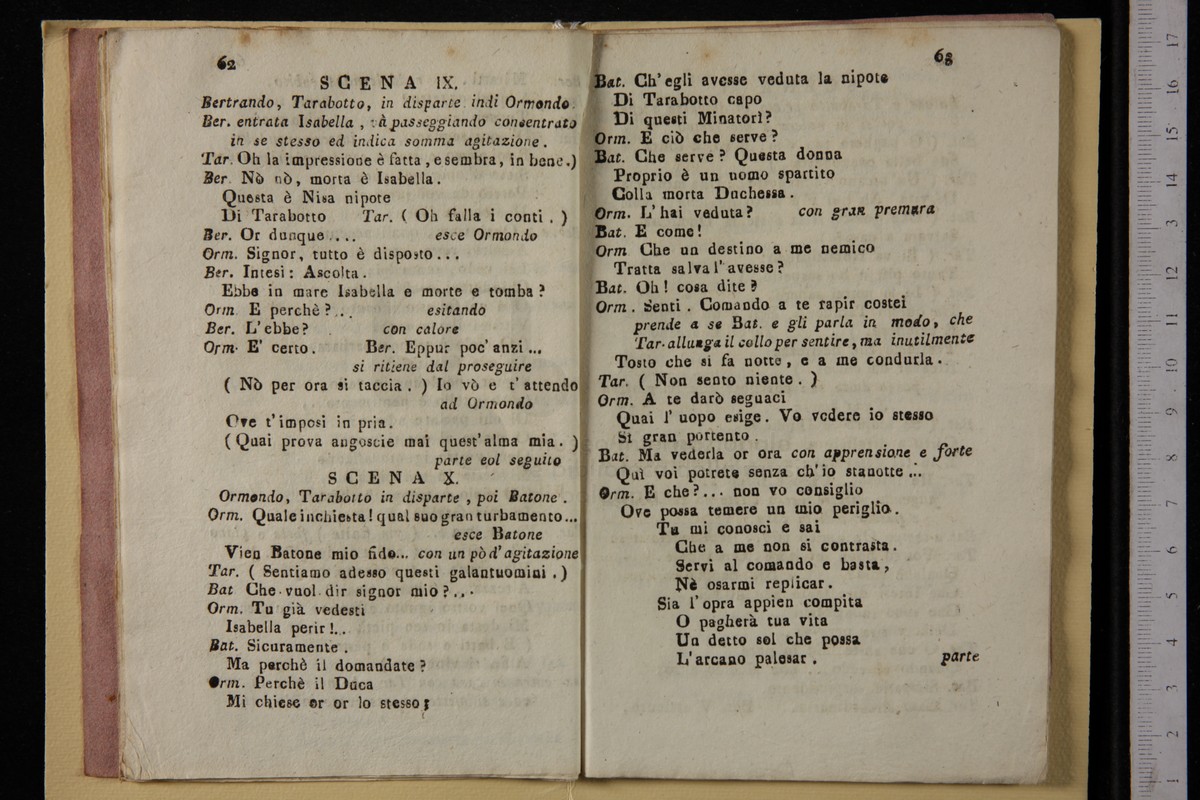 62
SCENA IX.
Bertrando, Tarabotto, in disparte indi Ormondo.
Ber. entrata Isabella, và passeggiando consentrato
in se stesso ed indica somma agitazione.
Tar. Oh la impressione è fatta, e sembra, in bene.)
Ber. Nò nò, morta è Isabella.
Questa è Nisa nipote
Di Tarabotto Tar. ( Oh falla i conti. )
Ber. Or dunque.... esce Ormondo
Orm. Signor, tutto è disposto...
Ber. Intesi: Ascolta.
Ebbe in mare Isabella e morte e tomba?
Orm. E perchè?... esitando
Ber. L'ebbe? con calore
Orm. E' certo. Ber. Eppur poc'anzi...
si ritiene dal proseguire
( Nò per ora si taccia. ) Io vò e t'attendo
ad Ormondo
Ove t'imposi in pria.
(Quai prova angoscie mai quest'alma mia. )
parte col seguito
SCENA X.
Ormondo, Tarabotto in disparte, poi Batone.
Orm. Quale inchiesta! qual suo gran turbamento...
esce Batone
Vien Batone mio fido... con un pò d'agitazione
Tar. ( Sentiamo adesso questi galantuomini.)
Bat Che vuol dir signor mio?...
Orm. Tu già vedesti
Isabella perir!...
Bat. Sicuramente.
Ma perchè il domandate?
Orm. Perchè il Duca
Mi chiese or or lo stesso;
63
Bat. Ch'egli avesse veduta la nipote
Di Tarabotto capo
Di questi Minatori?
Orm. E ciò che serve?
Bat. Che serve? Questa donna
Proprio è un uomo spartito
Colla morta Duchessa.
Orm. L'hai veduta? con gran premura
Bat. E come!
Orm Che un destino a me nemico
Tratta salva l'avesse?
Bat. Oh! cosa dite?
Orm. Senti. Comando a te rapir costei
prende a se Bat. e gli parla in modo, che
Tar. allunga il collo per sentire, ma inutilmente
Tosto che si fa notte, e a me condurla.
Tar. ( Non sento niente. )
Orm. A te darò seguaci
Quai l'uopo esige. Vo vedere io stesso
Si gran portento.
Bat. Ma vederla or ora con apprensione e forte
Quì voi potrete senza ch'io stanotte...
Orm. E che?... non vo consiglio
Ove possa temere un mio periglio.
Tu mi conosci e sai
Che a me non si contrasta.
Servi al comando e basta,
Nè osarmi replicar.
Sia l'opra appien compita
O pagherà tua vita
Un detto sol che possa
L'arcano palesar. parte
17
16
15
14
13
12
11
10
9
8
7
6
5
4
3
2
1